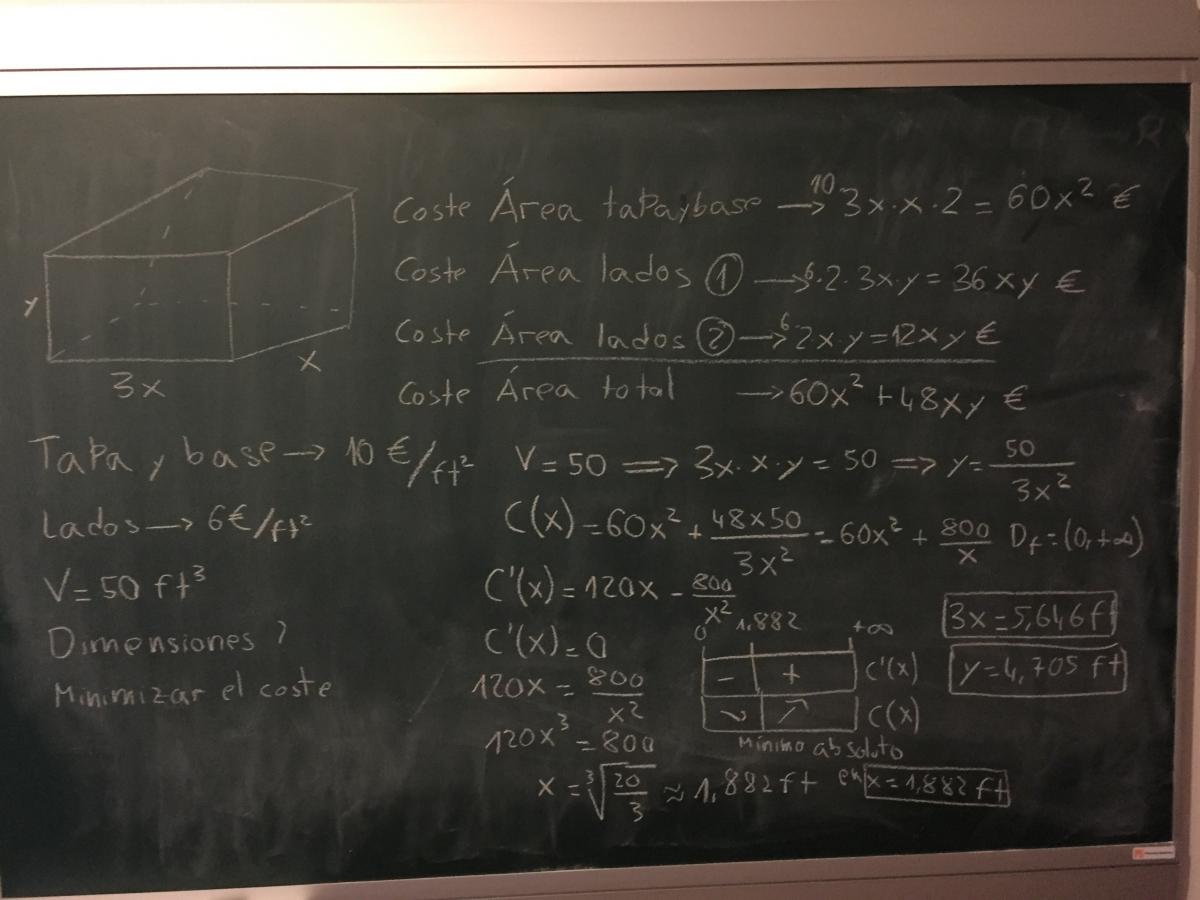 Coste Área tapa y base → 10 3x·x·2 = 60x² €
Coste Área lados ① → 6·2·3x·y = 36xy €
Coste Área lados ② → 6·2x·y = 12xy €
Coste Área total → 60x² + 48xy €
y
x
3x
Tapa y base → 10 €/ft²
Lados → 6€/ft²
V = 50 ft³
Dimensiones ?
Minimizar el coste
V = 50 ⟹ 3x·x·y = 50 ⟹ y = 50/3x²
C(x) = 60x² + 48x50/3x² = 60x² + 800/x Df = (0, +∞)
C'(x) = 120x - 800/x²
C'(x) = 0
120x = 800/x²
120x³ = 800
x = ∛(20/3) ≈ 1,882 ft
0 1,882 +∞
- + C'(x)
↘ ↗ C(x)
Mínimo absoluto
en x = 1,882 ft
3x = 5,646 ft
y = 4,705 ft